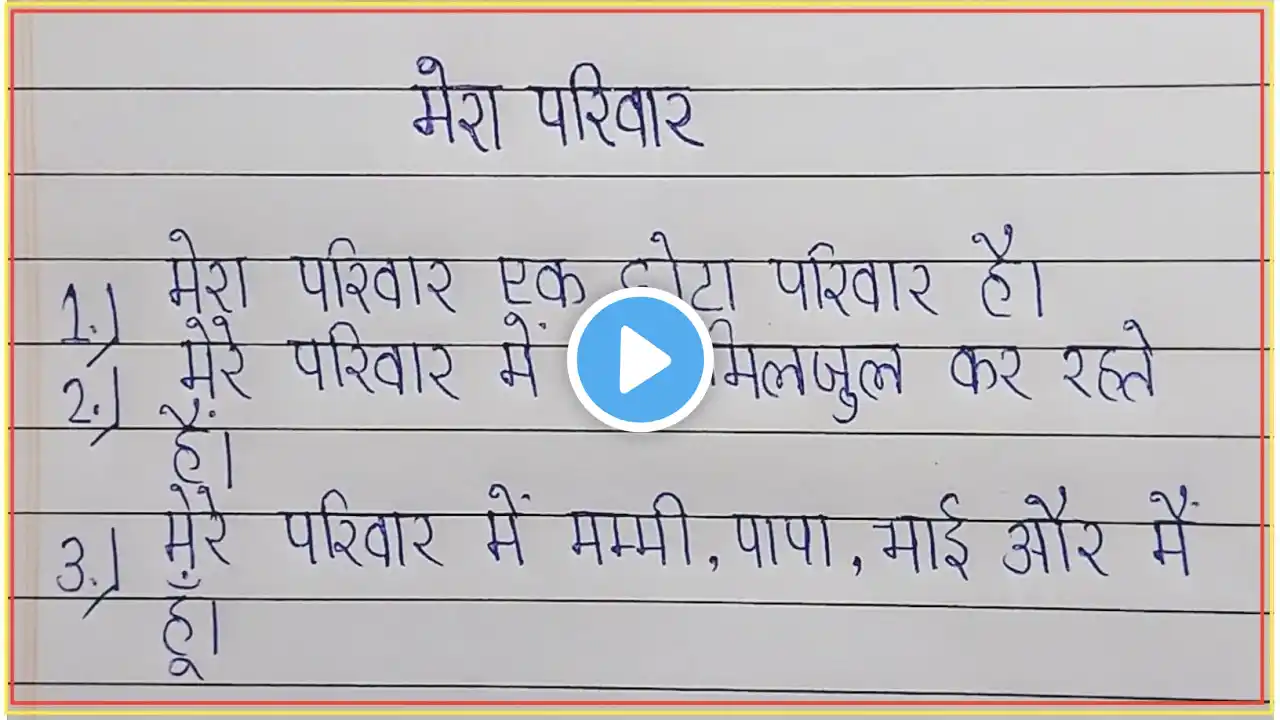 मेरा परिवार
1.) मेरा परिवार एक छोटा परिवार है।
2.) मेरे परिवार में मिलजुल कर रहते
हैं।
3.) मेरे परिवार में मम्मी, पापा, भाई और मैं
हूँ।